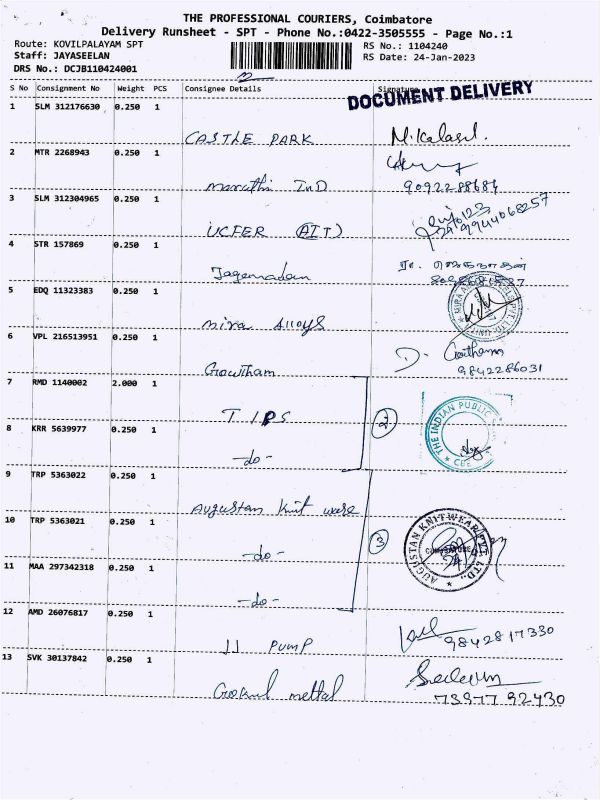 THE PROFESSIONAL COURIERS, Coimbatore
Delivery Runsheet - SPT - Phone No.:0422-3505555 - Page No.:1
Route: KOVILPALAYAM SPT RS No.: 1104240
Staff: JAYASEELAN RS Date: 24-Jan-2023
DRS No.: DCJB110424001
S No Consignment No Weight PCS Consignee Details Signature
DOCUMENT DELIVERY
1 SLM 312176630 0.250 1
CASTLE PARK M.Kalasel.
2 MTR 2268943 0.250 1
Maruthi InD 9092288684
3 SLM 312304965 0.250 1
UCFER (AIT) 9944068257
4 STR 157869 0.250 1
Jagannadan
5 EDQ 11323383 0.250 1
Mira Alloys
6 VPL 216513951 0.250 1
Gowtham D. Gowthams
9842286031
7 RMD 1140002 2.000 1
TIPS 2
THE INDIAN PUBLIC
CBE
8 KRR 5639977 0.250 1
-do-
9 TRP 5363022 0.250 1
Augustan Knit ware
10 TRP 5363021 0.250 1
-do- 3
AUGUSTAN KNITWEAR PVT LTD.,
11 MAA 297342318 0.250 1
-do-
12 AMD 26076817 0.250 1
JJ PUMP 9842817330
13 SVK 30137842 0.250 1
Gokul mettal
73977 92430